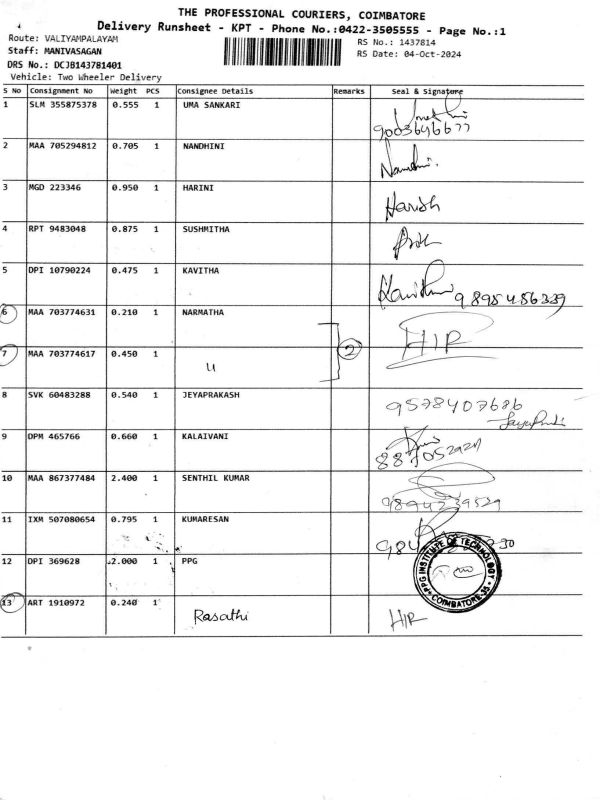 THE PROFESSIONAL COURIERS, COIMBATORE
Delivery Runsheet - KPT - Phone No.:0422-3505555 - Page No.:1
Route: VALIYAMPALAYAM
RS No.: 1437814
Staff: MANIVASAGAN
RS Date: 04-Oct-2024
DRS No.: DCJB143781401
Vehicle: Two Wheeler Delivery
S No Consignment No Weight PCS Consignee Details Remarks Seal & Signature
1 SLM 355875378 0.555 1 UMA SANKARI
9003646677
2 MAA 705294812 0.705 1 NANDHINI
Nandhini.
3 MGD 223346 0.950 1 HARINI
Harish
4 RPT 9483048 0.875 1 SUSHMITHA
5 DPI 10790224 0.475 1 KAVITHA
Kavitha 9895456339
6 MAA 703774631 0.210 1 NARMATHA
2 HIR
7 MAA 703774617 0.450 1
u
8 SVK 60483288 0.540 1 JEYAPRAKASH
9578407686
9 DPM 465766 0.660 1 KALAIVANI
10 MAA 867377484 2.400 1 SENTHIL KUMAR
9894239529
11 IXM 507080654 0.795 1 KUMARESAN
12 DPI 369628 2.000 1 PPG
PPG INSTITUTE OF TECHNOLOGY
COIMBATORE-35
13 ART 1910972 0.240 1
Rasathi HIR